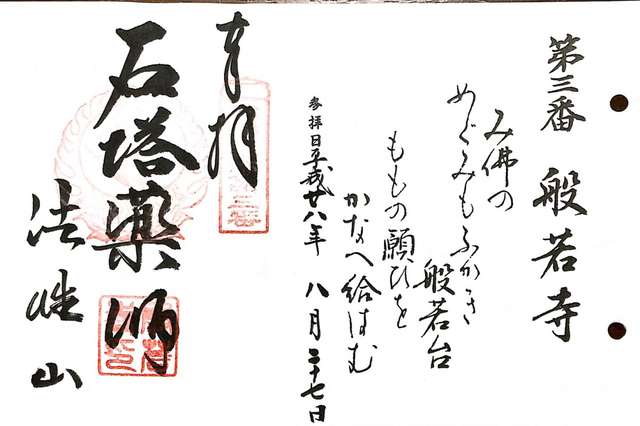 第三番 般若寺
み佛の
めぐみもふかき
般若台
ももの願ひを
かなへ給はむ
参拝日平成廿八年 八月二十七日
奉拝
石塔薬師
法性山